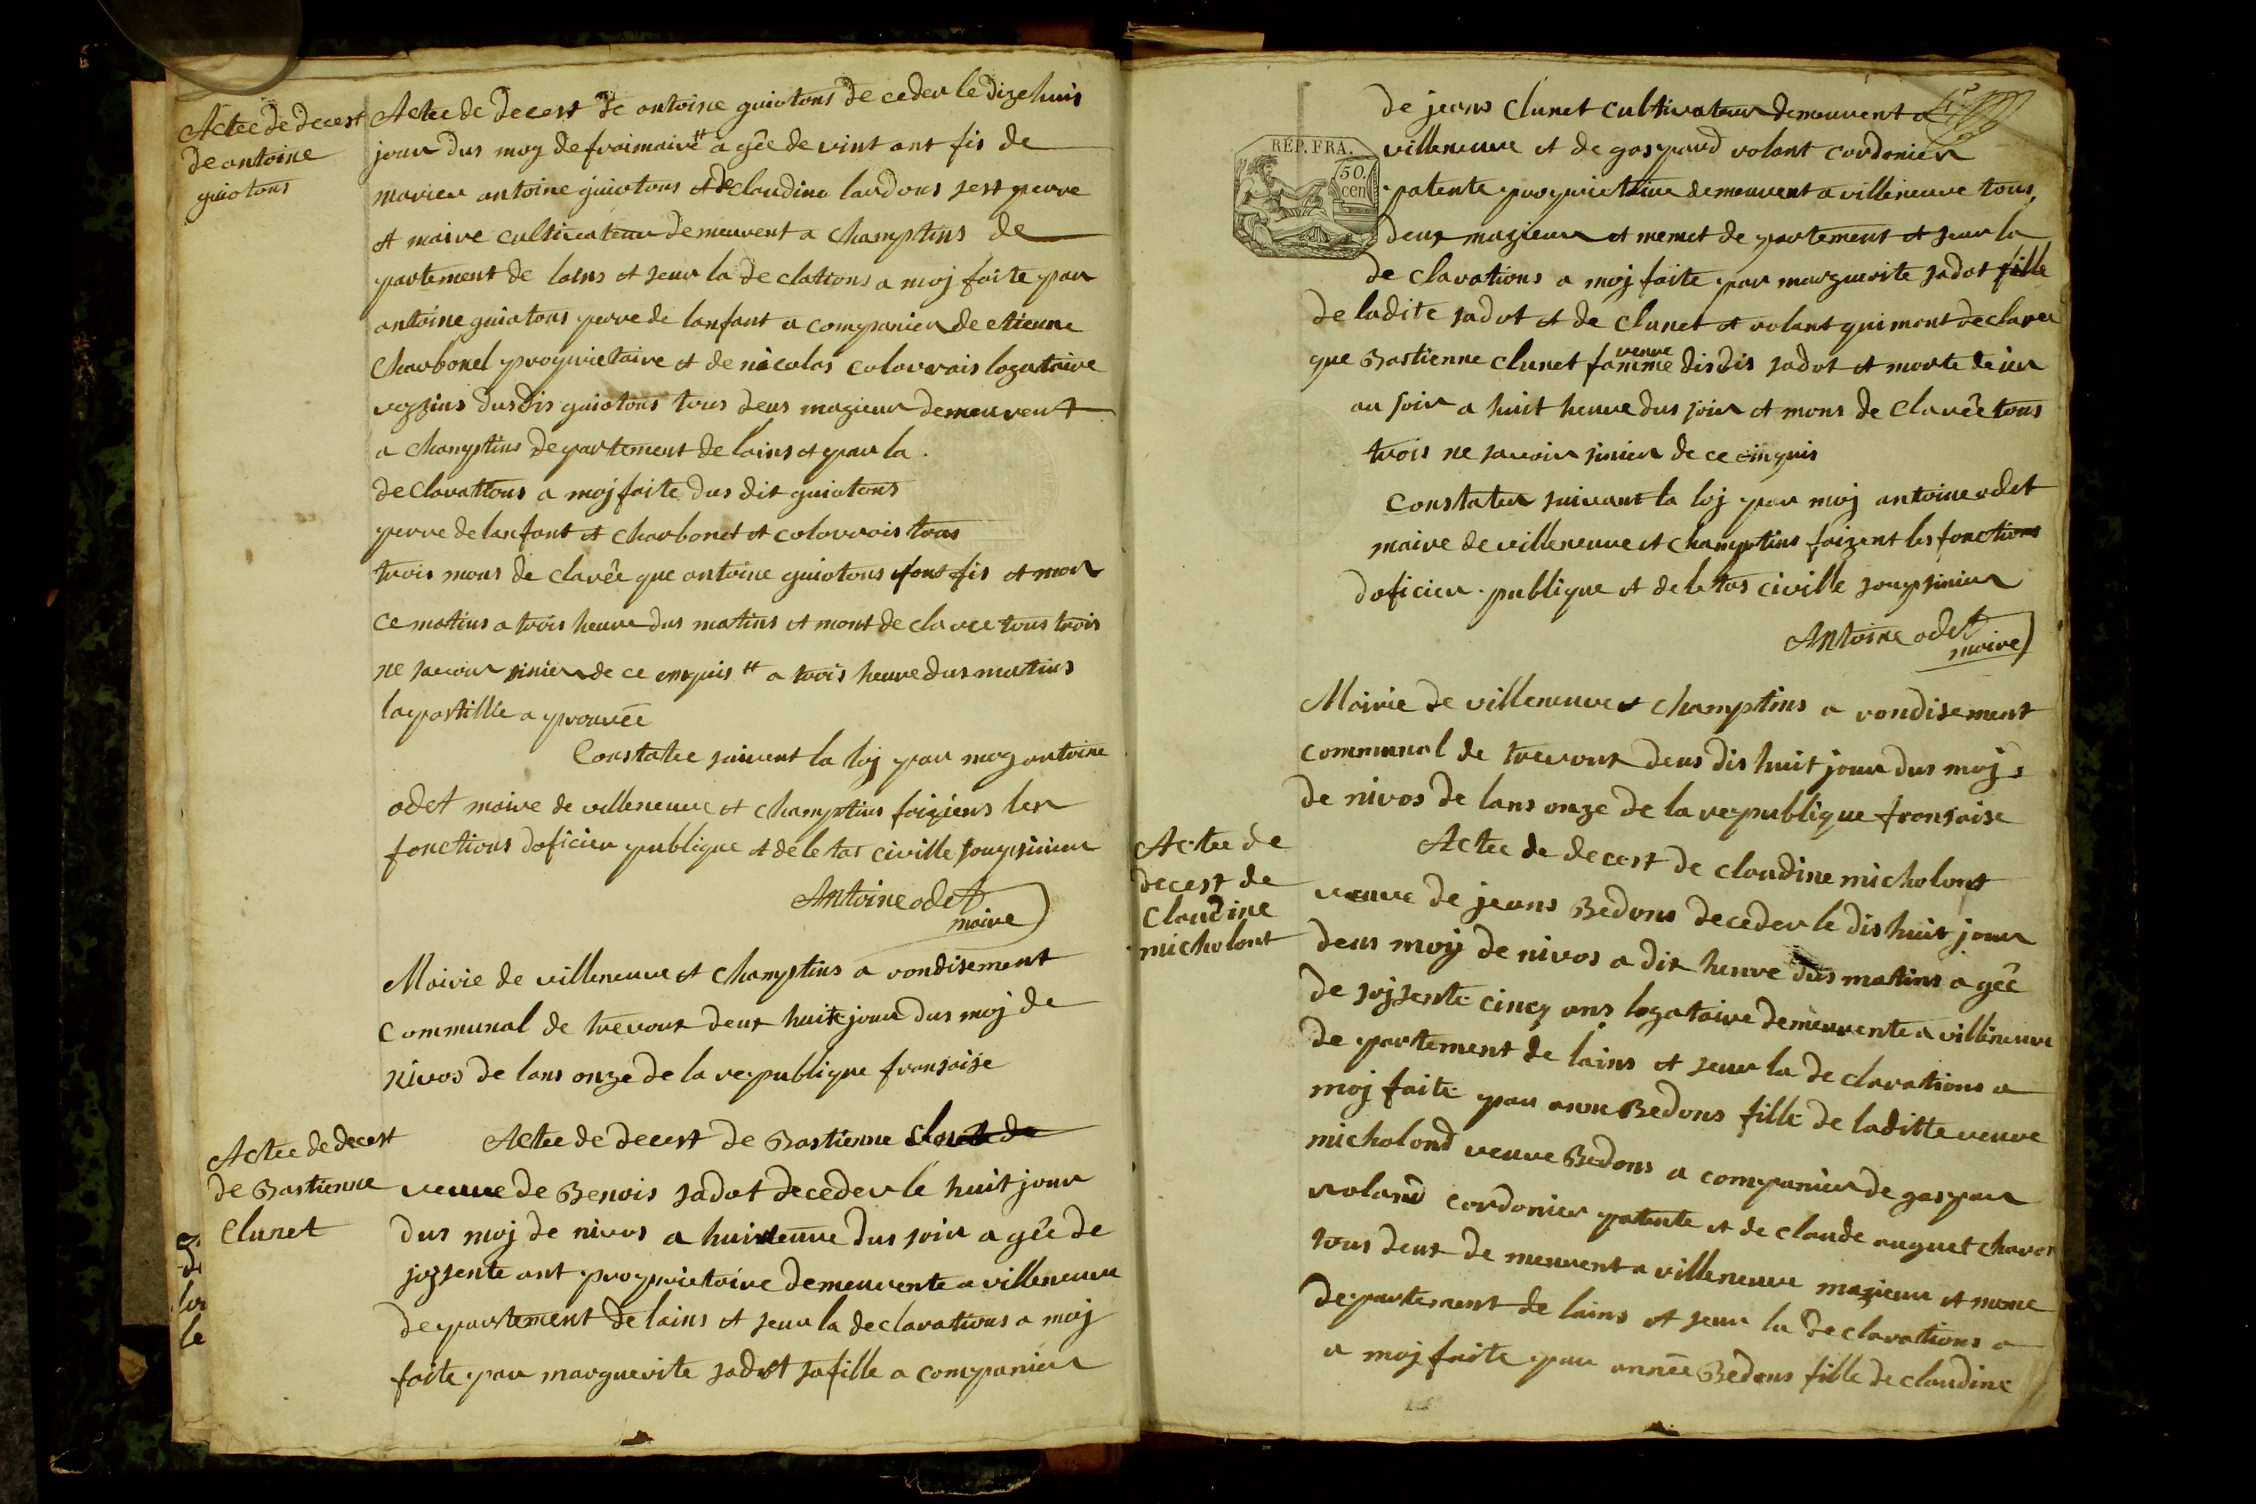 Actee de decest
de antoine
guiotons
Actee de decest de antoine guiotons de ceder le dizehuis
jour dus moy de fraimaire # a gêe de vint ant fis de
marier antoine guiotons et de claudine lardons sest perre
et maire cultivateur demeurent a Champtins de
partement de lains et seur la de clations a moj faite par
antoine guiotons perre de lanfant a companier de etienne
Charbonel proprietaire et de nicolas colovrais logataire
voyzins dusdis guiotons tous deus mazieur demeurent
a Champtins departement de lains et par la
declarations a moj faite dus dit guiotons
perre de lanfant et charbonet et colovrois tous
trois mons de clarêe que antoine guiotons sont fis et mor
ce matins a trois heure dus matins et mont de claree tous trois
ne savoir sinier de ce enquis # a trois heure dus matins
lapostillie a prouvée
Constatee suivent la loj par moy antoine
odet maire de villeneuve et Champtins faiziens les
fonctions doficier publique et de le tas civille soupsinier
Antoine odet
maire
Mairie de villeneuve et Champtins a rondisement
Communal de trevous deus huite jour dus moj de
nivos de lans onze de la republique fransaise
Actee de decest
de Bastienne
Clunet
Actee de decest de Bastienne
veuve de Benois sadot deceder le huit jour
dus moj de nivos a huit eure dus soir a gêe de
soyzente ant proprietaire demeurente a villeneuve
departement de lains et seur la declarations a moj
faite par marguerite sadot sa fille a companier
de jeans Clunet Cultivateur demeurent a
villeneuve et de gaspard volant cordonier
RÉP. FRA.
50.
cen
patente proprietaire demeurent a villeneuve tous
deus mazieur et memet de partement et seur la
de clarations a moj faite par marguerite sadot fille
de ladite sadot et de Clunet et volant qui mont declarer
que Bastienne Clunet famme veuve disdis sadot et morte de ier
au soir a huit heure dus soir et mons de clarêe tous
trois ne savoir sinier de ce einquis
Constater suivant la loj par moj antoine odet
maire de villeneuve et Champtins faizent les fonctions
doficier publique et de le tas civille soupsinier
Antoine odet
maire
Mairie de villeneuve et Champtins a rondisement
Communal de trevous deus dis huit jour dus moj
de nivos de lans onze de la republique fransaise
Actee de
decest de
Claudine
micholont
Actee de decest de Claudine micholont
veuve de jeans Bedons deceder le dis huit jour
deus moy de nivos a dix heure dus matins a gêe
de soyzente cincq ans logataire demeurente a villeneuve
de partement de lains et seur la declarations a
moj faite par anne Bedons fille de laditte veuve
micholond veuve Bedons a companier de gaspar
voland cordonier patente et de claude auguet charon
tous deus de meurent a villeneuve mazieur et meme
departement de lains et seur la declarations a
a moj faite par année Bedons fille de claudine